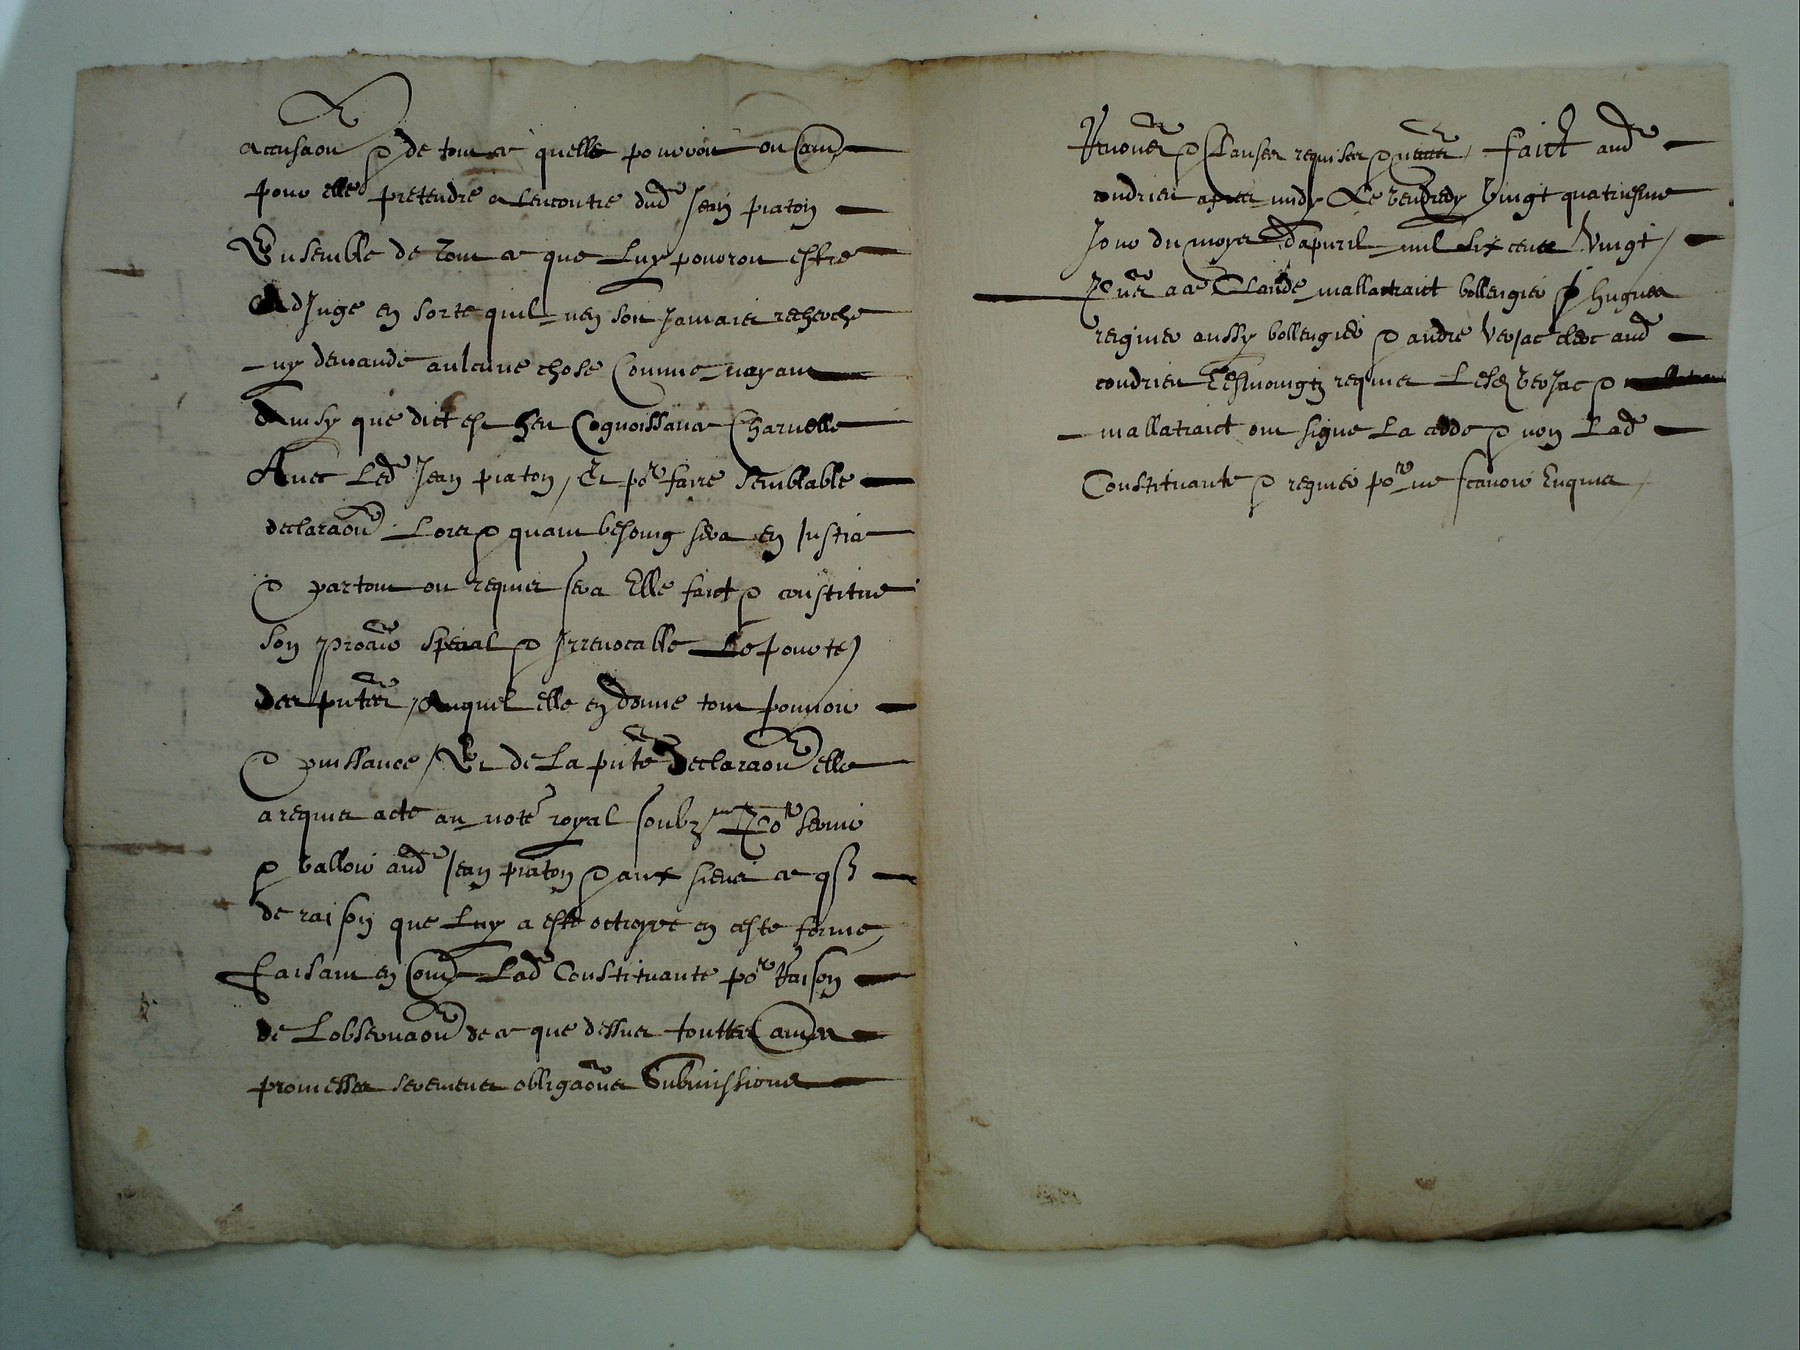 accusaon & de tout ce quelle pouvoit ou
pour elle pretendre a lencontre dud Jean piaton
Ensemble de tout ce que luy pouroit estre
AdJuge en sorte quil nen soit Jamais recherche
ny demande aulcune chose Comme nayant
Ainsy que dict est heu Cognoissance Charnelle
Avec led Jean piaton, Et por faire semblable
declaraon Lors & quant besoing sera en Justice
& partout ou requis sera Elle faict & constitue
son procur special & Irrevocable Le pourteur
des pntes, Auquel elle en donne tout pouvoir
& puissance, Et de La pnte declaraon elle
a requis acte au note royal soubzne Por servir
& valloir aud Jean piaton & aux siens ce que
de raison que Luy a este octroye en ceste forme,
faisant en Lad Constituante por Raison
de Lobservaon de ce que dessus touttes
promesses seremens obligaones Submissions
& Clauses requises & faict aud
condrieu apres midy Le vendredy Vingt quatriesme
Jour du moys dapvril mil six cents Vingt,
Pnt a ce Claude mallatraict bollengier & hugues
regnier aussy bollengier & andre verjac clerc aud
condrieu Tesmoingtz requis Lesd verJac &
mallatraict ont signe La cedde & non Lad
Constituante & regnier por ne scavoir Enquis